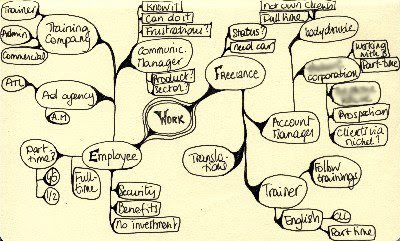 Trainer
Admin
Commercial
Training
Company
Know it
Can do it
Frustrations?
Communic.
Manager
Product?
Sector?
ATL
Ad agency
A.M
WORK
Status?
need car
Freelance
not own clients
Full time
Bodyshoppie
Working
with
Part-time
corporation
Prospection
Clients via
niche!
Account
Manager
Part
time?
4/5
1/2
Full-
time
Employee
Security
Benefits
No investment
Transla-
tions
Trainer
Follow
trainings
English
Part time